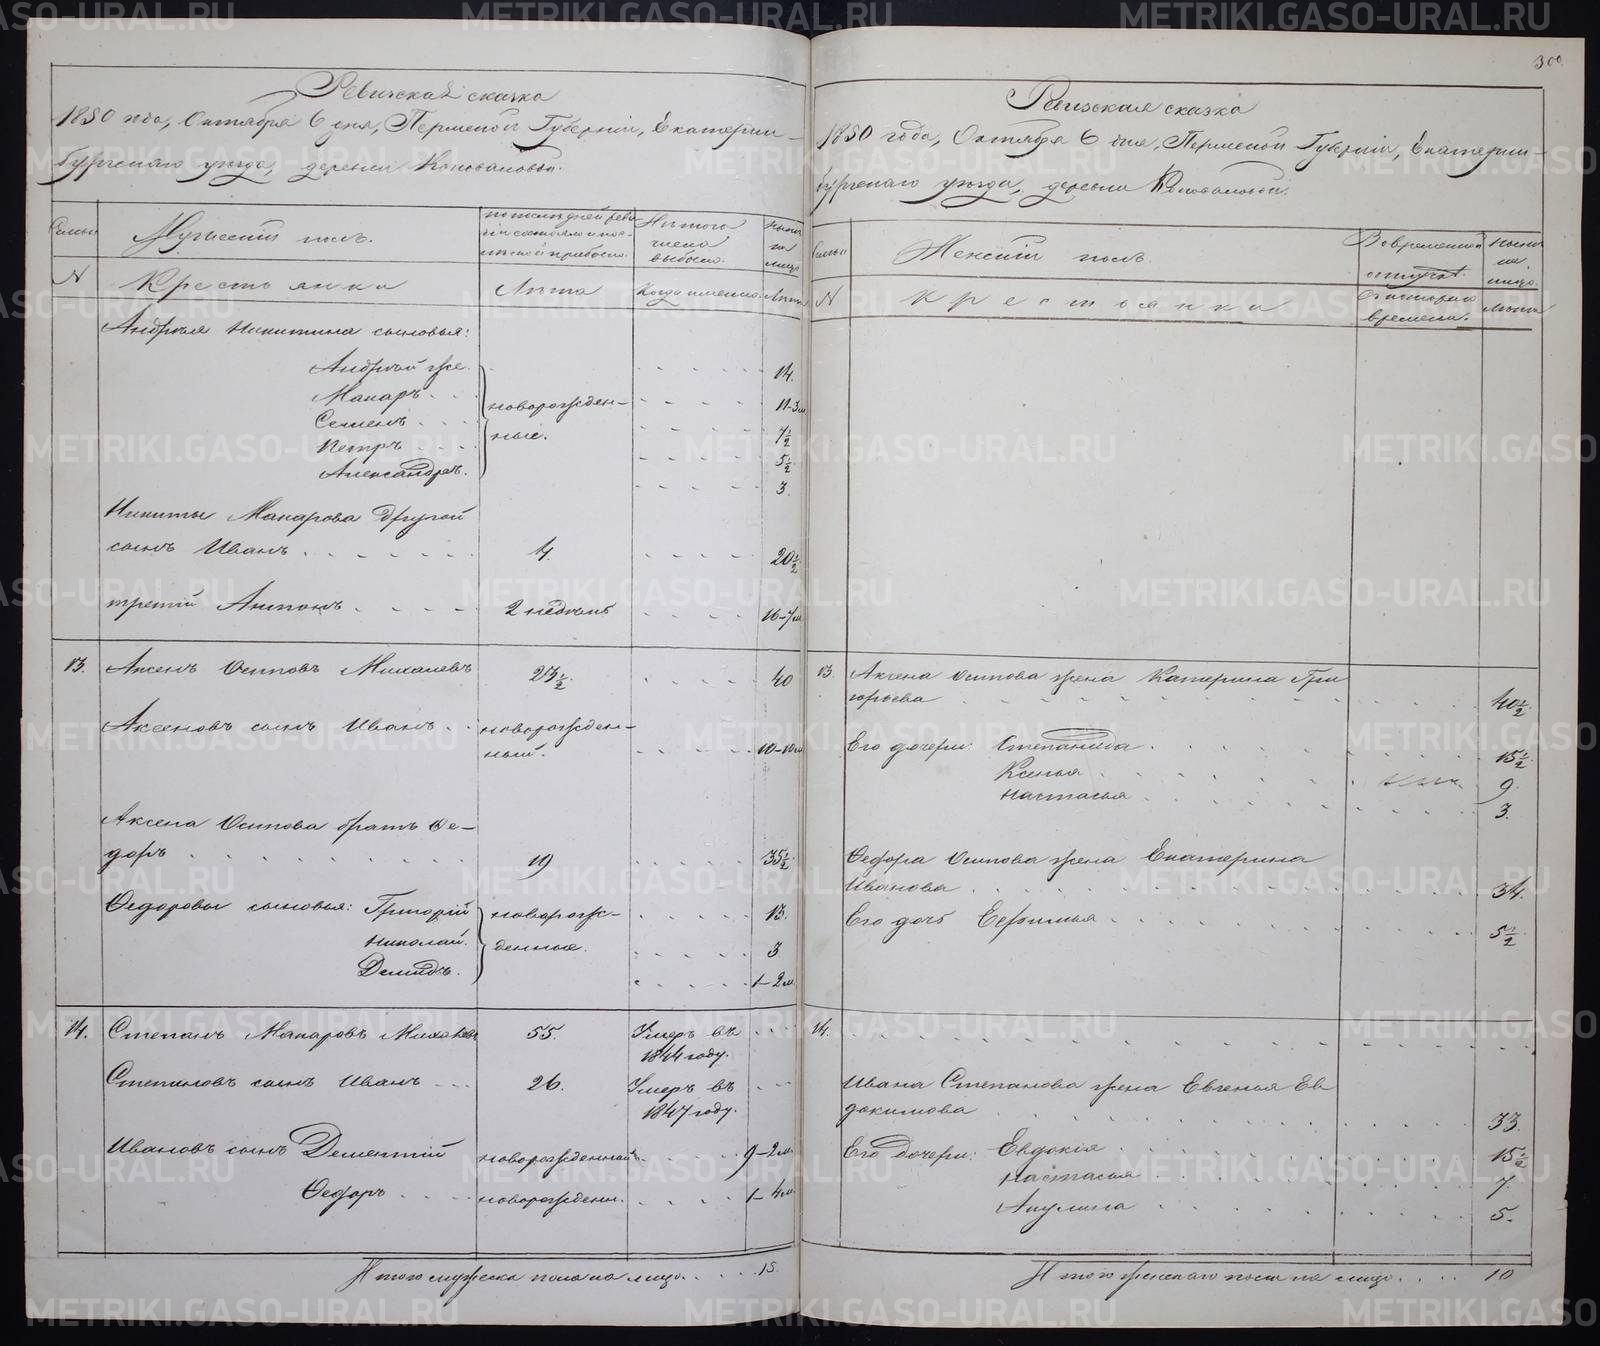 300
Ревизская сказка
1850 года, Октября 6 дня, Пермской Губерніи, Екатерин-
бургскаго уѣзда, деревни Коноваловой.
Семьи
Мужескій полъ.
По послѣдней реви-
зіи состояло и пос-
лѣ ской прибыло.
Изъ того
числа
выбыло.
Нынѣ
на
лицо
N
Крестьянка
Лѣта
Когда именно.
Лѣта
Андрея Никитина сыновья:
Андрей же. 14.
Макаръ 11-3 м
Семенъ 7 1/2
Петръ 5 1/2
Александръ. 3.
новорожден-
ные.
Никиты Макарова другой
сынъ Иванъ 4. 20 1/2
третій Антонъ 2 недѣль 16-7 м
13. Аксенъ Осиповъ Михалевъ 23 1/2 40
Аксеновъ сынъ Иванъ новорожден-
ный. 10-10 м
Аксена Осипова братъ Фе-
доръ 19 35 1/2
Федоровы сыновья: Григорій новорож- 13.
Николай. денные. 3
Демидъ. 1-2 м
14. Степанъ Макаровъ Михалевъ 55. Умеръ въ
1844 году.
Степановъ сынъ Иванъ 26. Умеръ въ
1847 году.
Ивановъ сынъ Дементій новорожденный 9-2 м.
Федоръ новорожден. 1-4 м
Итого мужеска пола на лицо 15.
Ревизская сказка
1850 года, Октября 6 дня, Пермской Губерніи, Екатерин-
бургскаго уѣзда, деревни Коноваловой.
Семьи
Женскій полъ.
Во временной
отлучкѣ.
Нынѣ
на
лицо.
N
Крестьянка
Съ котораго
времени.
Лѣта
13. Аксена Осипова жена Катерина Гри
горьева 40 1/2
Его дочери: Степанида 15 1/2
Ксенья 9.
Настасья 3.
Федора Осипова жена Екатерина
Иванова 34.
Его дочь Ефимья 5 1/2
14.
Ивана Степанова жена Евгенья Ев
докимова 33.
Его дочери: Евдокія 15 1/2
Настасья 7.
Акулина 5.
Итого женскаго пола на лицо 10
METRIKI.GASO-URAL.RU